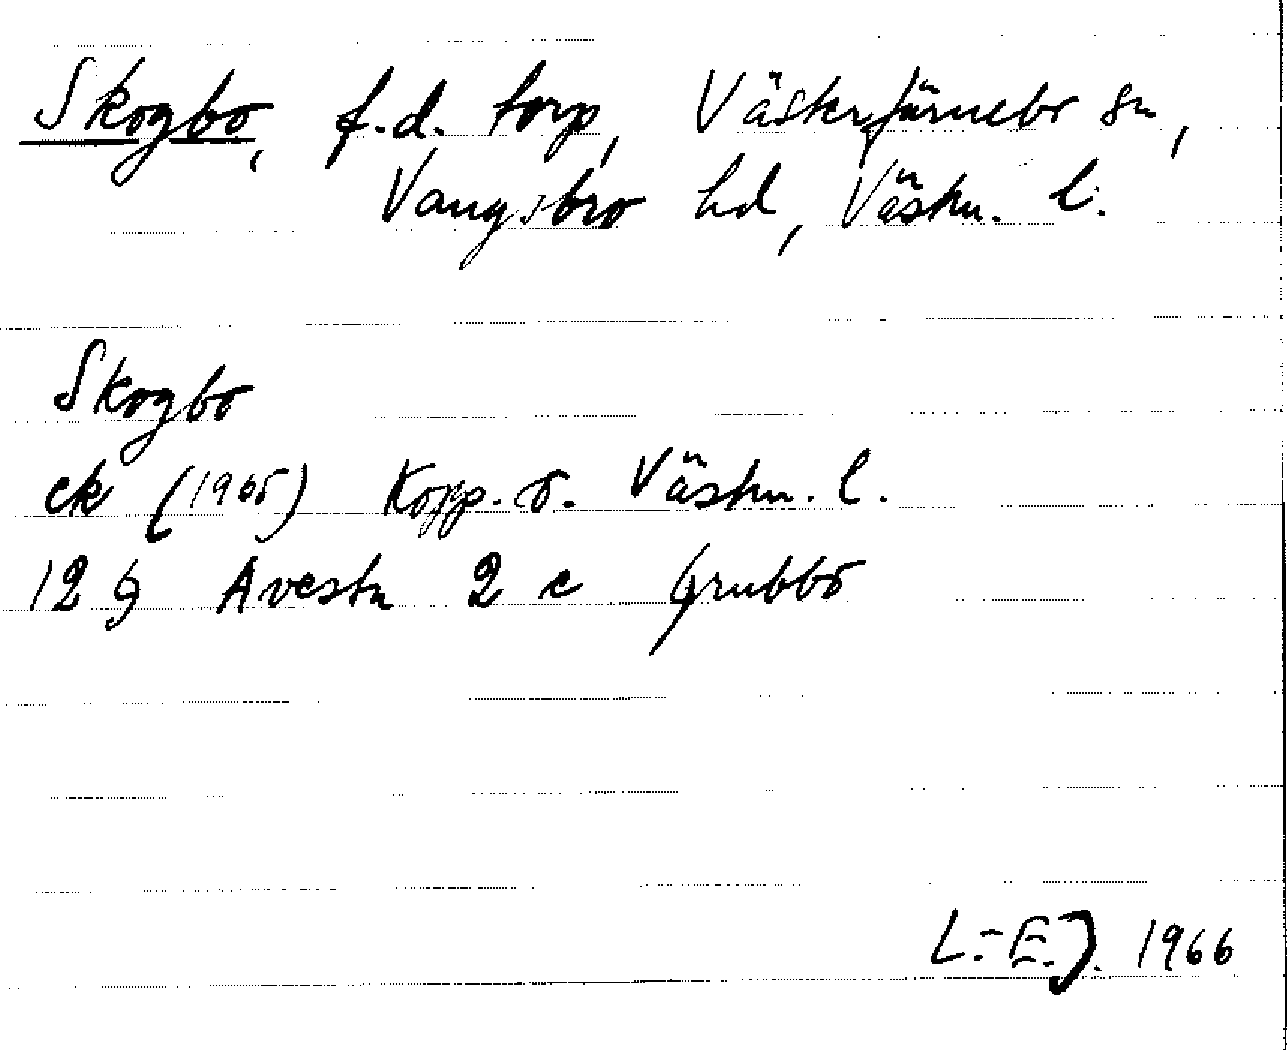 Skogbo, f.d. torp, Västerfärnebo sn,
Vangsbro hd, Västm. l.
Skogbo
ek (1965) Kopp. o. Västm. l.
12 G Avesta 2 c Grubbo
L.-E.J. 1966